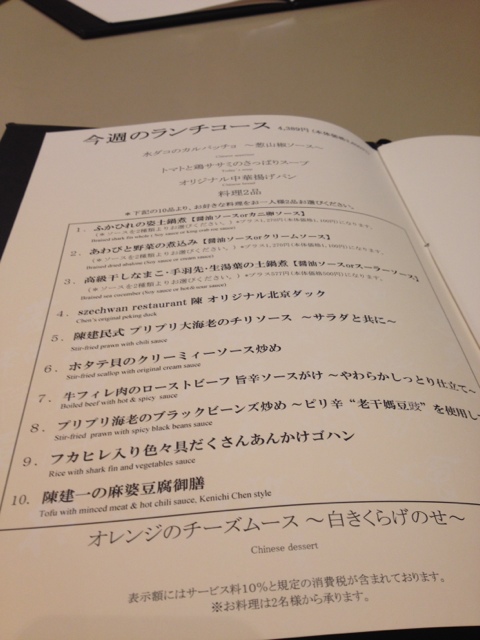 今週のランチコース 4,389円
水ダコのカルパッチョ ～葱山椒ソース～
トマトと鶏ササミのさっぱりスープ
オリジナル中華揚げパン
料理2品
＊下記の10品より、お好きな料理をお一人様2品お選びください。
1. ふかひれの姿土鍋煮【醤油ソースorカニ卵ソース】
（＊ソースを2種類よりお選びください。）
2. あわびと野菜の煮込み【醤油ソースorクリームソース】
（＊ソースを2種類よりお選びください。）
Braised dried abalone (Soy sauce or cream sauce)
3. 高級干しなまこ・手羽先・生湯葉の土鍋煮【醤油ソースorスーラーソース】
（＊ソースを2種類よりお選びください。）
Braised sea cucumber (Soy sauce or hot&sour sauce)
4. szechwan restaurant 陳 オリジナル北京ダック
Chen's original peking duck
5. 陳建民式 プリプリ大海老のチリソース ～サラダと共に～
Stir-fried prawn with chili sauce
6. ホタテ貝のクリーミィーソース炒め
Stir-fried scallop with original cream sauce
7. 牛フィレ肉のローストビーフ 旨辛ソースがけ ～やわらかしっとり仕立て～
Boiled beef with hot & spicy sauce
8. プリプリ海老のブラックビーンズ炒め ～ピリ辛“老干媽豆豉”を使用し
Stir-fried prawn with spicy black beans sauce
9. フカヒレ入り色々具だくさんあんかけゴハン
Rice with shark fin and vegetables sauce
10. 陳建一の麻婆豆腐御膳
Tofu with minced meat & hot chili sauce, Kenichi Chen style
オレンジのチーズムース ～白きくらげのせ～
Chinese dessert
表示額にはサービス料10%と規定の消費税が含まれております。
※お料理は2名様から承ります。